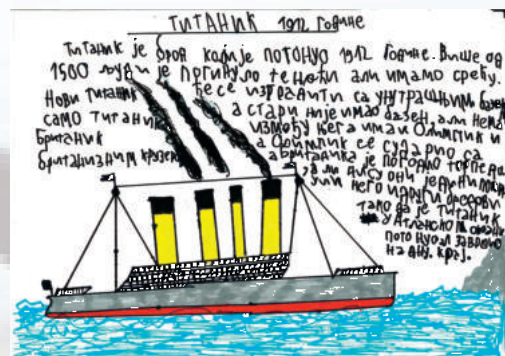 ТИТАНИК 1912 Године
Титаник је брод који је потонуо 1912 Године. Више од
1500 људи је пргинуло те ноћи али имамо срећу.
Нови Титаник ће се изградити са унутрашњим базен
а стари није имао базен, али нема
само Титаник између њега има и Олимпик и
Британик а Олимпик се сударио са
британским крузером а британика је погодио торпедо
а ми нису они једини
него и други бродови
тако да је Титаник
у Атланском океану
потонуо и завршио
на дну. крај.